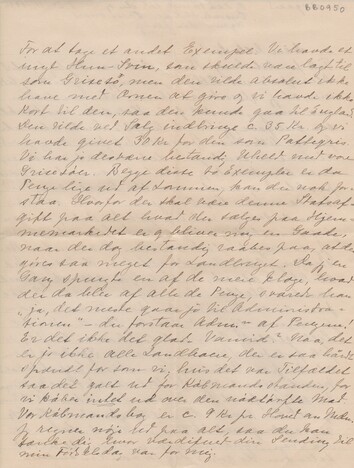 BB0950
For at tage et andet Exempel. Vi havde et
ungt Hun-Svin, som skulde være lagt til
som Griseso, men den vilde absolut ikke
have med Ornen at gøre og vi havde ikke
Kort til den, saa den kunde gaa til England.
Den vilde ved Salg indbringe c. 35 Kr og vi
havde givet 30 Kr for den som Pattegris.
Vi har jo desværre bestandig Uheld med vore
Grisesøer. Begge disse to Exempler er da
Penge lige ud af Lommen, kan du nok for-
staa. Hvorfor der skal være denne Statsaf-
gift paa alt hvad der sælges paa Hjem-
memarkedet er og bliver mig en Gaade,
naar der dog bestandig raabes paa, at der
gøres saa meget for Landbruget. Da jeg en
Gang spurgte en af de mere kloge, hvad
der da blev af alle de Penge, svarede han
"ja, det meste gaar jo til Administra-
tionen" - du forstaar Adm - af Pengene!
Er det ikke det glade Vanvid? Naa, det
er jo ikke alle Landboere, der er saa haardt
spændt for som vi, hvis det var Tilfældet
saa det galt ud for Købmandsstanden, for
vi køber intet ud over den nødtørftige Mad
Vor Købmandsbog er c. 9 Kr pr Hoved om Maaneden.
Jeg regner nøje ud paa alt, saa du kan
tænke dig, hvor værdifuld din Sending til
min Fødselsdag var for mig.